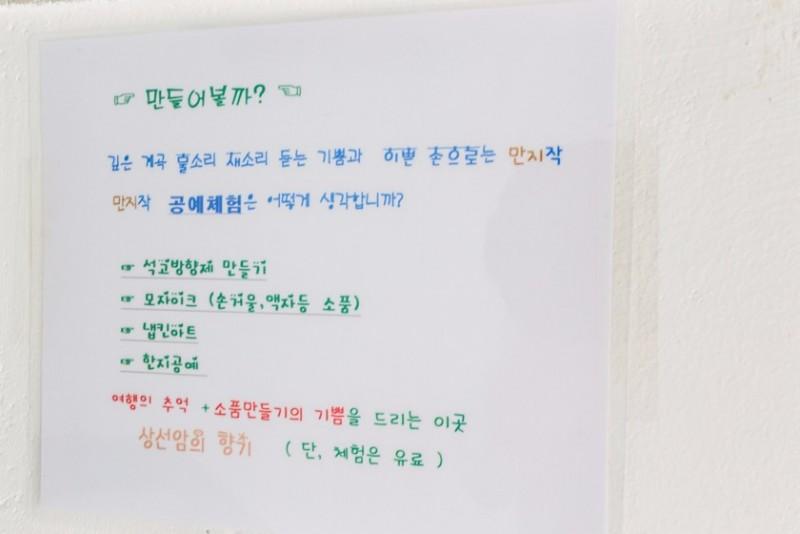 ☞ 만들어볼까? ☜
깊은 계곡 물소리 새소리 듣는 기쁨과 이쁜 손으로는 만지작
만지작 공예체험은 어떻게 생각합니까?
☞ 석고방향제 만들기
☞ 모자이크 (손거울,액자등 소품)
☞ 냅킨아트
☞ 한지공예
여행의 추억 +소품만들기의 기쁨을 드리는 이곳
상선암의 향취 ( 단, 체험은 유료 )